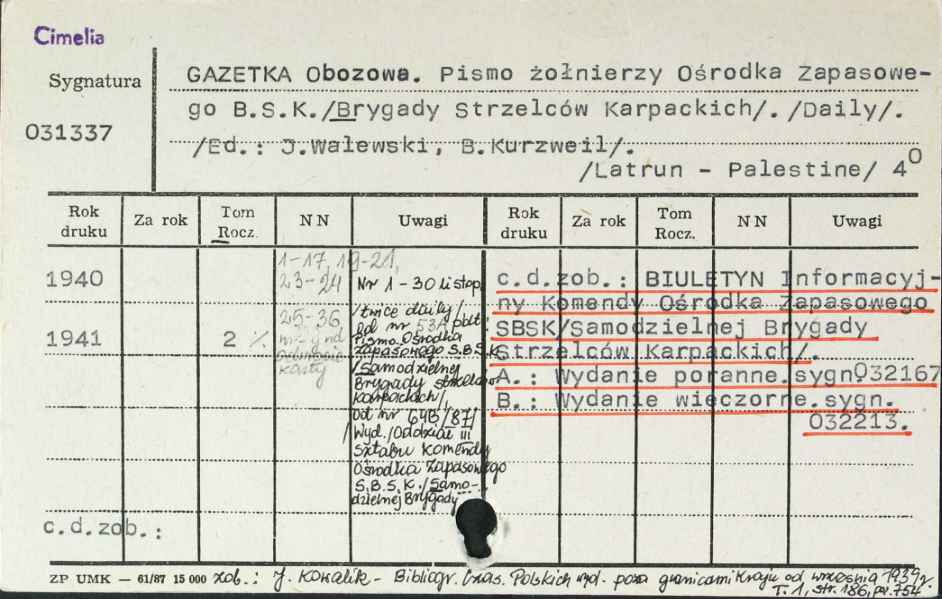 Cimelia
Sygnatura
031337
GAZETKA Obozowa. Pismo żołnierzy Ośrodka Zapasowe-
go B.S.K./Brygady Strzelców Karpackich/. /Daily/.
/Ed.: J.Walewski, B.Kurzweil/.
/Latrun - Palestine/ 4°
Rok druku Za rok Tom Rocz. NN Uwagi Rok druku Za rok Tom Rocz. NN Uwagi
1940
1-17, 19-21,
23-24
Nr 1 - 30 listop.
1941
2
25-36
/twice daily/
od nr 53A podt.
Pismo Ośrodka
Zapasowego S.B.S.K.
/Samodzielnej
Brygady Strzelców
Karpackich/,
od nr 64B/87/
Wyd./Oddział III
Sztabu Komendy
Ośrodka Zapasowego
S.B.S.K./Samo-
dzielnej Brygady
c.d.zob.: BIULETYN Informacyj-
ny Komendy Ośrodka Zapasowego
SBSK/Samodzielnej Brygady
Strzelców Karpackich/.
A.: Wydanie poranne.sygn.032167
B.: Wydanie wieczorne.sygn.
032213.
c.d.zob.:
ZP UMK — 61/87 15 000 zob.: J. Kowalik - Bibliogr. Czas. Polskich wyd. poza granicami Kraju od września 1939 r.
T. 1, str. 186, poz. 754